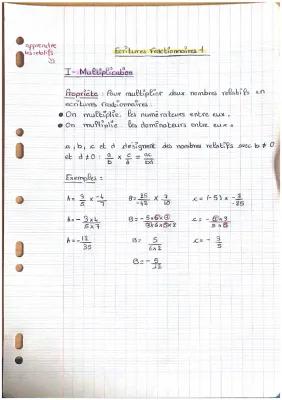 apprendre
les relatifs
Écritures Fractionnaires 1
I- Multiplication
Propriété : Pour multiplier deux nombres relatifs en
écritures fractionnaires :
• On multiplie les numérateurs entre eux.
• On multiplie les dominateurs entre eux.
a, b, c et d désignent des nombres relatifs avec b ≠ 0
et d ≠ 0 : a/b × c/d = ac/bd
Exemples :
A = 3/5 × -4/7
A = - 3×4/5×7
B = - 5×5×7
A = - 12/35
B = 5
C = - 3/5
B = - 5